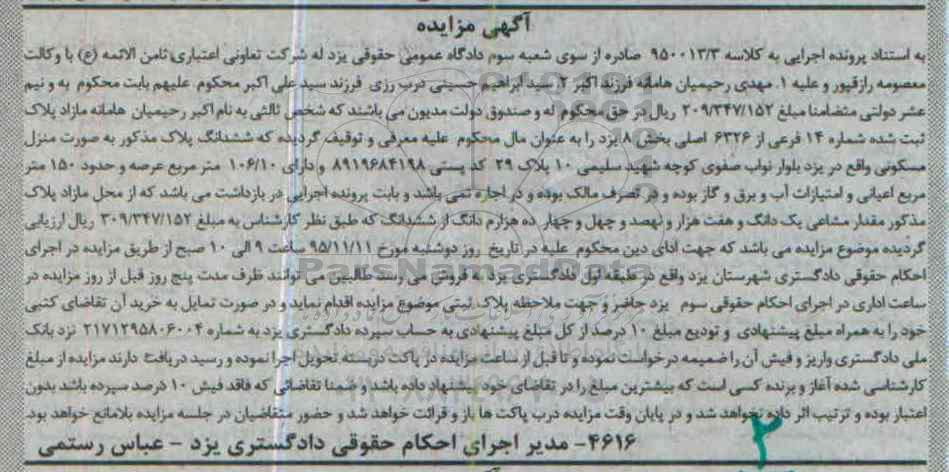 آگهی مزایده
به استناد پرونده اجرایی به کلاسه ۹۵۰۰۱۳/۳ صادره از سوی شعبه سوم دادگاه عمومی حقوقی یزد له شرکت تعاونی اعتباری ثامن الائمه (ع) با وکالت
معصومه رازقپور و علیه ۱. مهدی رحیمیان هامانه فرزند اکبر ۲. سید ابراهیم حسینی درب رزی فرزند سید علی اکبر محکوم علیهم بابت محکوم به و نیم
عشر دولتی متضامنا مبلغ ۳۰۹/۳۴۷/۱۵۲ ریال در حق محکوم له و صندوق دولت مدیون می باشند که شخص ثالثی به نام اکبر رحیمیان هامانه مازاد پلاک
ثبت شده شماره ۱۴ فرعی از ۶۳۲۶ اصلی بخش ۸ یزد را به عنوان مال محکوم علیه معرفی و توقیف گردیده که ششدانگ پلاک مذکور به صورت منزل
مسکونی واقع در یزد بلوار نواب صفوی کوچه شهید سلیمی ۱۰ پلاک ۲۹ کد پستی ۸۹۱۹۶۸۴۱۹۸ و دارای ۱۰۶/۱۰ متر مربع عرصه و حدود ۱۵۰ متر
مربع اعیانی و امتیازات آب و برق و گاز بوده و در تصرف مالک بوده و در اجاره نمی باشد و بابت پرونده اجرایی در بازداشت می باشد که از محل مازاد پلاک
مذکور مقدار مشاعی یک دانگ و هفت هزار و نهصد و چهل و چهار ده هزارم دانگ از ششدانگ که طبق نظر کارشناس به مبلغ ۳۰۹/۳۴۷/۱۵۲ ریال ارزیابی
گردیده موضوع مزایده می باشد که جهت ادای دین محکوم علیه در تاریخ روز دوشنبه مورخ ۹۵/۱۱/۱۱ ساعت ۹ الی ۱۰ صبح از طریق مزایده در اجرای
احکام حقوقی دادگستری شهرستان یزد واقع در طبقه اول دادگستری یزد به فروش می رسد طالبین می توانند ظرف مدت پنج روز قبل از روز مزایده در
ساعت اداری در اجرای احکام حقوقی سوم یزد حاضر و جهت ملاحظه پلاک ثبتی موضوع مزایده اقدام نماید و در صورت تمایل به خرید آن تقاضای کتبی
خود را به همراه مبلغ پیشنهادی و تودیع مبلغ ۱۰ درصد از کل مبلغ پیشنهادی به حساب سپرده دادگستری یزد به شماره ۲۱۷۱۲۹۵۸۰۶۰۰۴ نزد بانک
ملی دادگستری واریز و فیش آن را ضمیمه درخواست نموده و تا قبل از ساعت مزایده در پاکت دربسته تحویل اجرا نموده و رسید دریافت دارند مزایده از مبلغ
کارشناسی شده آغاز و برنده کسی است که بیشترین مبلغ را در تقاضای خود پیشنهاد داده باشد و ضمنا تقاضائی که فاقد فیش ۱۰ درصد سپرده باشد بدون
اعتبار بوده و ترتیب اثر داده نخواهد شد و در پایان وقت مزایده درب پاکت ها باز و قرائت خواهد شد و حضور متقاضیان در جلسه مزایده بلامانع خواهد بود.
۴۶۱۶- مدیر اجرای احکام حقوقی دادگستری یزد - عباس رستمی
۲
ParsNamadData